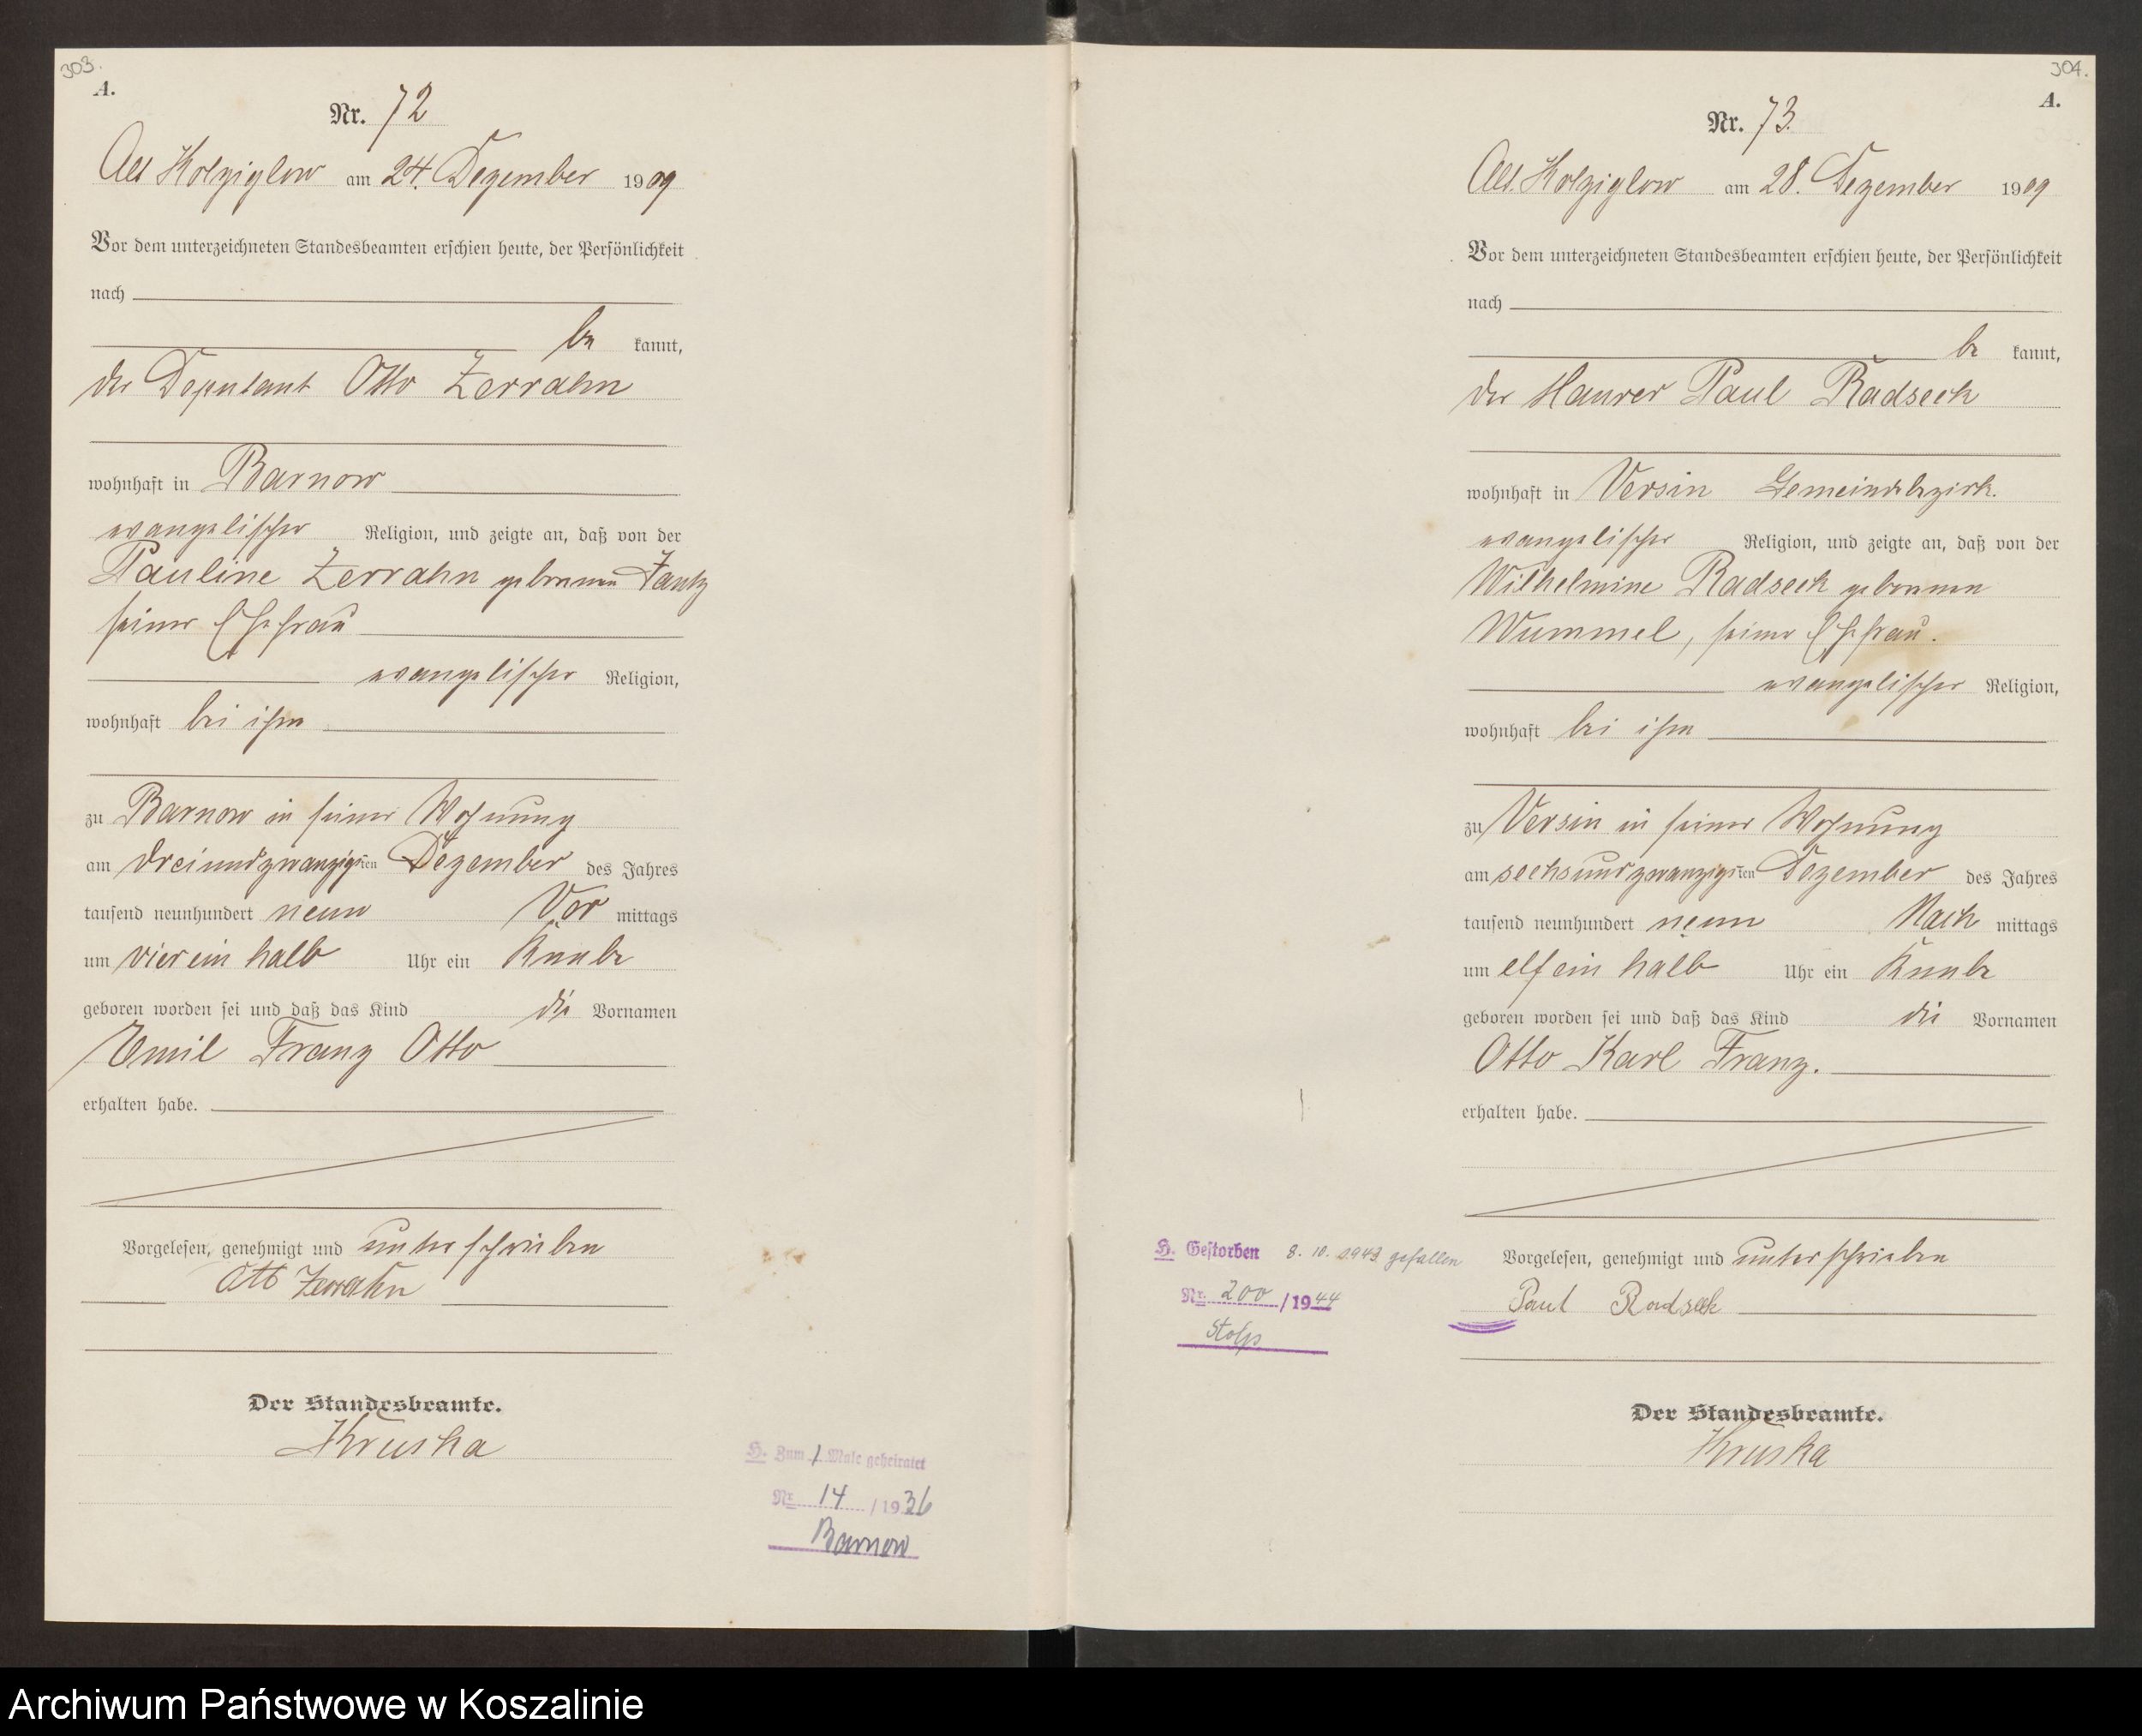 303.
A.
Nr. 72
Alt Kolziglow am 24. Dezember 1909
Vor dem unterzeichneten Standesbeamten erschien heute, der Persönlichkeit
nach
be kannt,
der Deputant Otto Zerrahn
wohnhaft in Barnow
evangelischer Religion, und zeigte an, daß von der
Pauline Zerrahn geborenen
seiner Ehefrau
evangelischer Religion,
wohnhaft bei ihm
zu Barnow in seiner Wohnung
am dreiundzwanzigsten Dezember des Jahres
tausend neunhundert neun Vor mittags
um vier ein halb Uhr ein Knabe
geboren worden sei und daß das Kind die Vornamen
Emil Franz Otto
erhalten habe.
Vorgelesen, genehmigt und unterschrieben
Otto Zerrahn
Der Standesbeamte.
Kruska
H. Zum 1 Male geheiratet
Nr. 14 / 1936
Barnow
304.
A.
Nr. 73.
Alt. Kolziglow am 28. Dezember 1909
Vor dem unterzeichneten Standesbeamten erschien heute, der Persönlichkeit
nach
be kannt,
der Maurer Paul Radseck
wohnhaft in Versin Gemeindebezirk.
evangelischer Religion, und zeigte an, daß von der
Wilhelmine Radseck geborenen
Wummel, seiner Ehefrau.
evangelischer Religion,
wohnhaft bei ihm
zu Versin in seiner Wohnung
am sechsundzwanzigsten Dezember des Jahres
tausend neunhundert neun Nach mittags
um elf ein halb Uhr ein Knabe
geboren worden sei und daß das Kind die Vornamen
Otto Karl Franz.
erhalten habe.
Vorgelesen, genehmigt und unterschrieben
Paul Radseck
Der Standesbeamte.
Kruska
H. Gestorben 8. 10. 1943 gefallen
Nr. 200 / 1944
Stolp
Archiwum Państwowe w Koszalinie